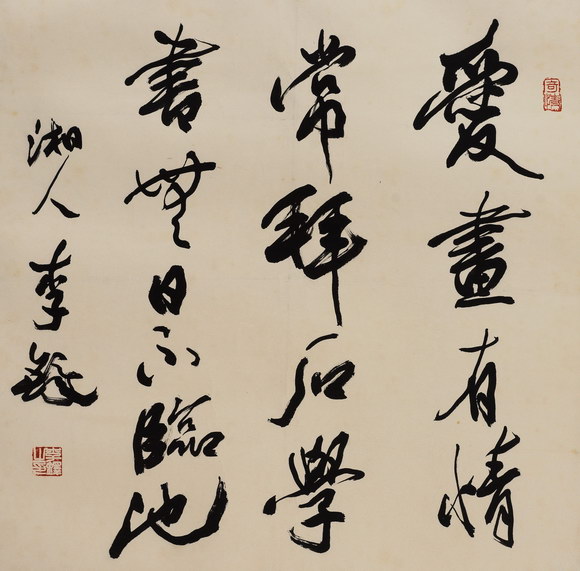 愛畫有情
常拜石學
書無日不臨池
湘人李鐸